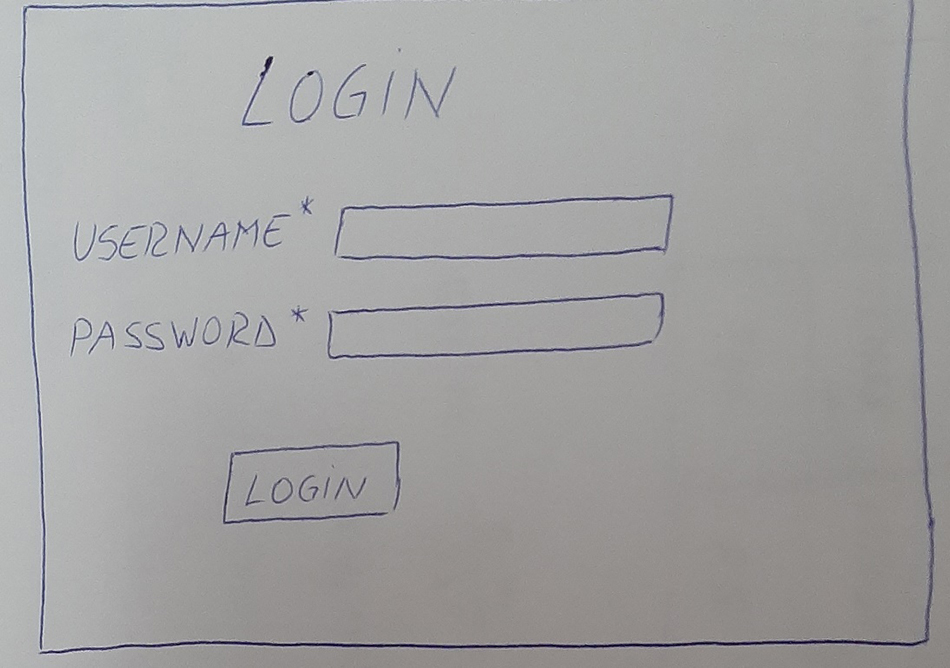 LOGIN
USERNAME*
PASSWORD*
LOGIN